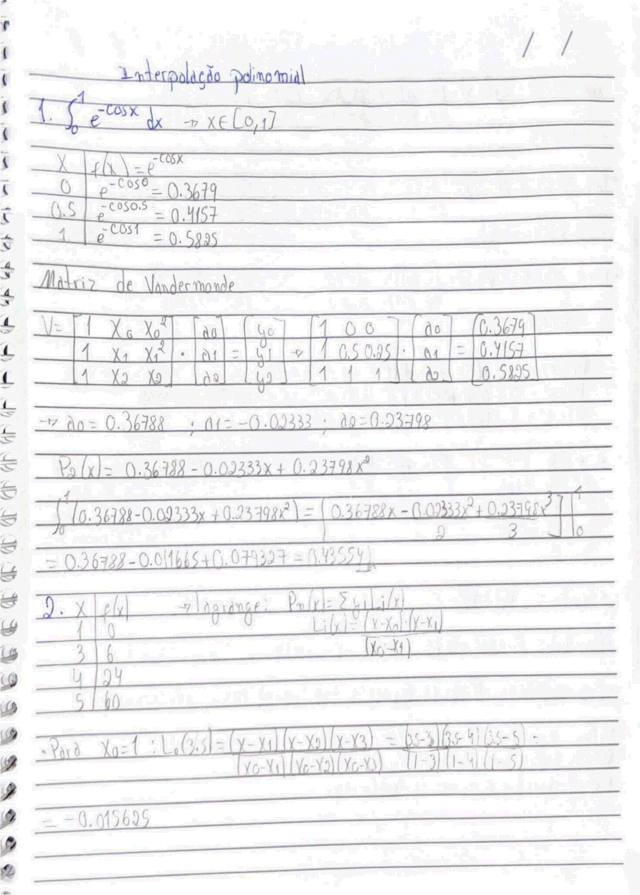 / /
Interpolação polinomial
1. ∫₀¹ e^-cosx dx → x∈[0,1]
x | f(x) = e^-cosx
0 | e^-cos0 = 0.3679
0.5 | e^-cos0.5 = 0.4157
1 | e^-cos1 = 0.5825
Matriz de Vandermonde
V= [1 x₀ x₀²] · [a0] = [y0] → [1 0 0] · [a0] = [0.3679]
[1 x₁ x₁²] [a1] [y1] [1 0.5 0.25] [a1] [0.4157]
[1 x₂ x₂] [a2] [y2] [1 1 1] [a2] [0.5825]
→ a0 = 0.36788 ; a1 = -0.02333 ; a2 = 0.23798
P₂(x) = 0.36788 - 0.02333x + 0.23798x²
∫₀¹ (0.36788 - 0.02333x + 0.23798x²) = [0.36788x - 0.02333x²/2 + 0.23798x³/3] |₀¹
= 0.36788 - 0.011665 + 0.079327 = 0.43554
2. x | f(x) → Lagrange: Pn(x) = Σ yi Li(x)
1 | 0 Li(x) = (x-x₀)·(x-x₁)/(x₀-x₁)
3 | 6
4 | 24
5 | 60
• Para x₀=1 : L₀(3.5) = (x-x₁)(x-x₂)(x-x₃)/(x₀-x₁)(x₀-x₂)(x₀-x₃) = (3.5-3)(3.5-4)(3.5-5)/(1-3)(1-4)(1-5) =
= -0.015625